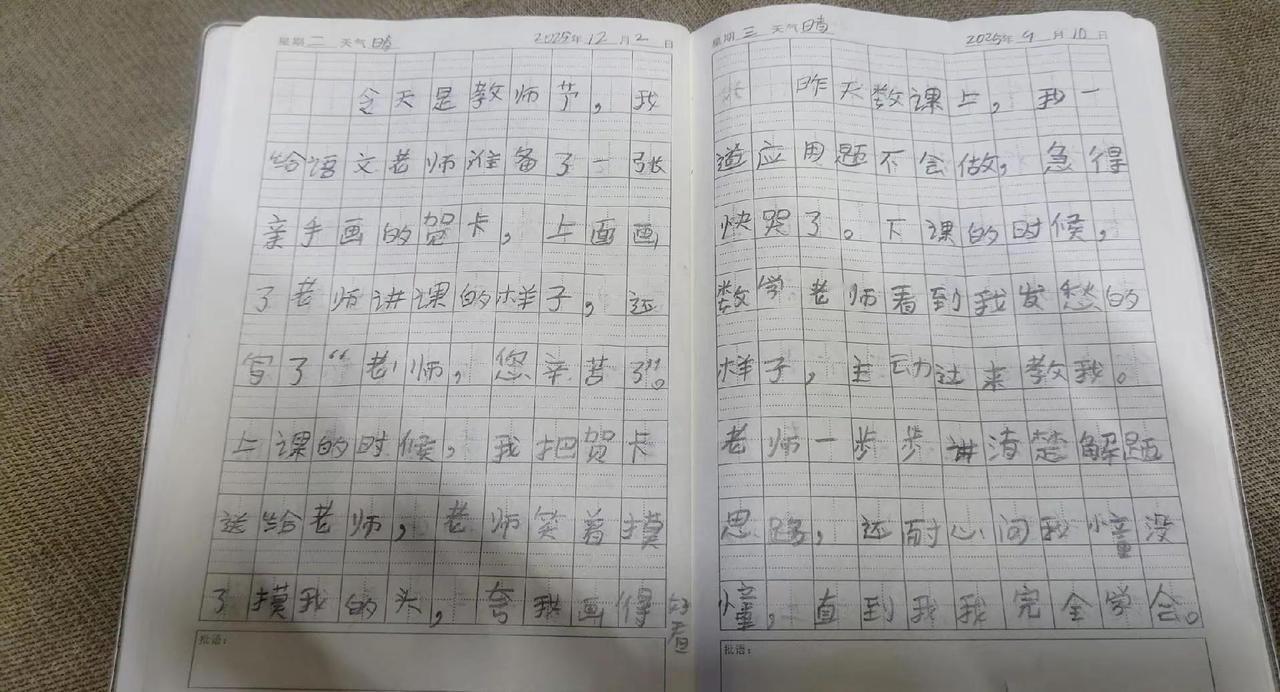 星期 二 天气 晴 2025年 12月 2日
今天是教师节，我
给语文老师准备了一张
亲手画的贺卡，上面画
了老师讲课的样子，还
写了“老师，您辛苦了”。
上课的时候，我把贺卡
送给老师，老师笑着摸
了摸我的头，夸我画得好看
批语：
星期 三 天气 晴 2025年 9月 10日
昨天数课上，我一
道应用题不会做，急得
快哭了。下课的时候，
数学老师看到我发愁的
样子，主动过来教我。
老师一步步讲清楚解题
思路，还耐心问我懂没
懂，直到我我完全学会。
批语：